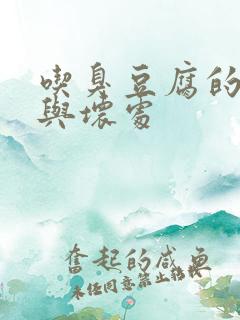 喫臭豆腐的
與壞處
奮起的咸魚
未經同意禁止轉載